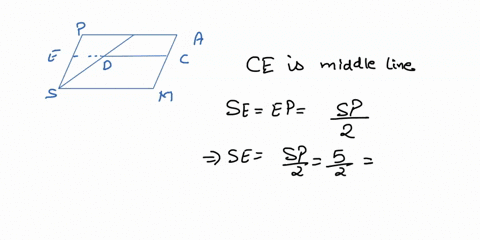 P
A
E
D
C
S
M
CE is middle line
SE = EP = SP/2
⇒ SE = SP/2 = 5/2 =